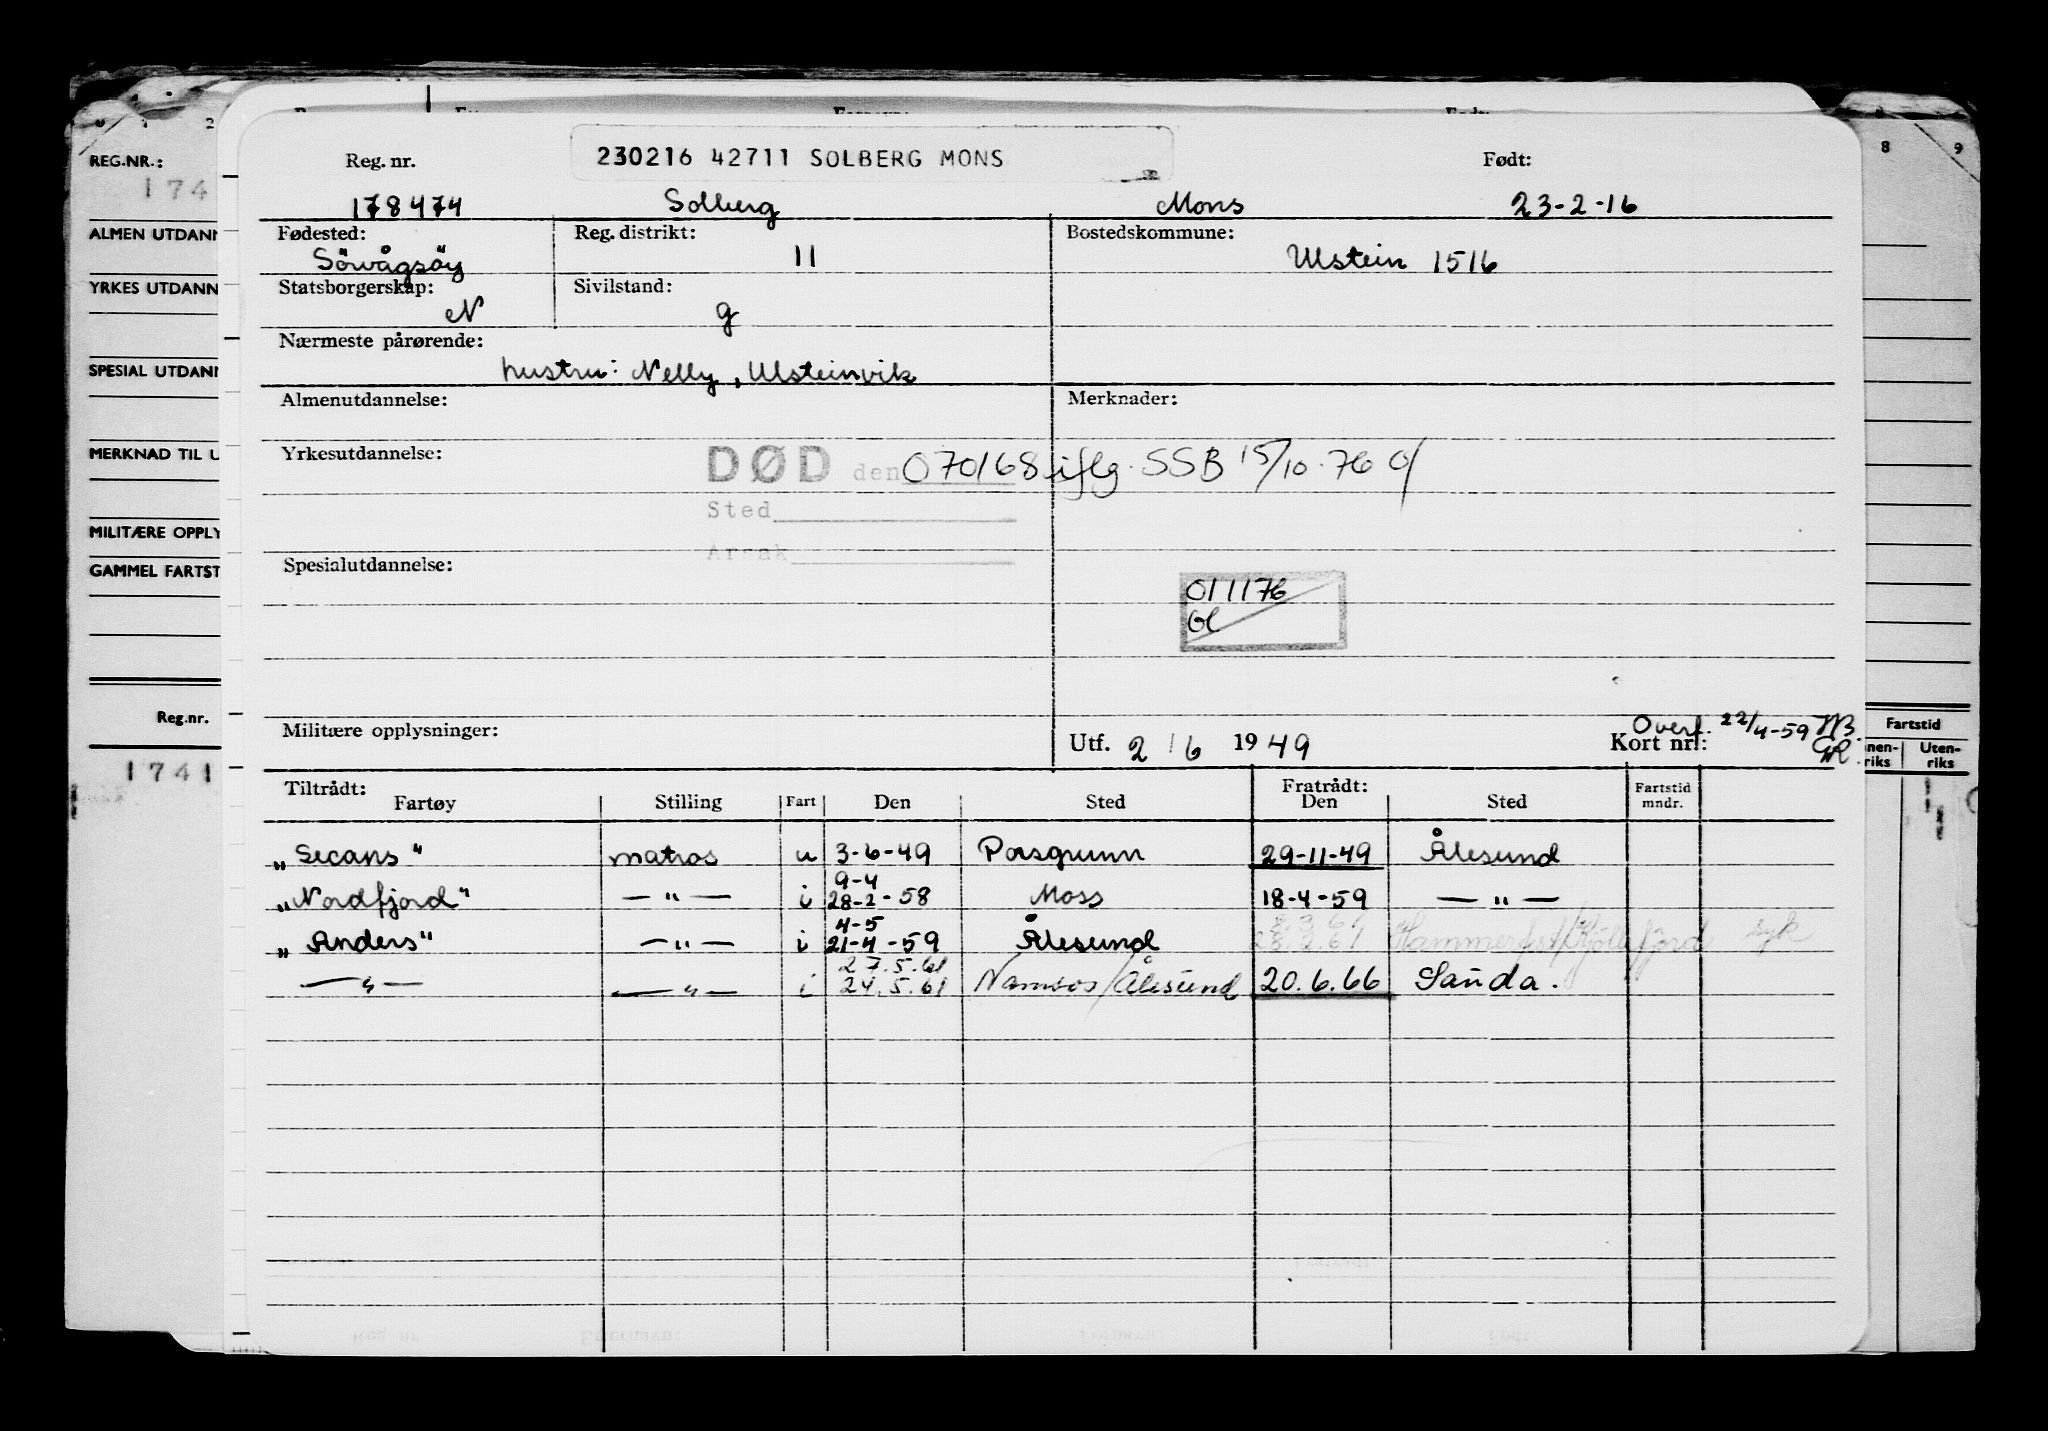 0 1 2 8 9
REG.NR.:
174
Reg. nr. 230216 42711 SOLBERG MONS Født:
178474 Solberg Mons 23-2-16
ALMEN UTDANN
Fødested: Reg. distrikt: Bostedskommune:
Sörvågsöy 11 Ulstein 1516
YRKES UTDANN
Statsborgerskap: Sivilstand:
N g
Nærmeste pårørende:
SPESIAL UTDANN
hustru: Nelly, Ulsteinvik
Almenutdannelse: Merknader:
MERKNAD TIL U
Yrkesutdannelse: DØD den 070168 iflg. SSB 15/10-76
Sted
MILITÆRE OPPLY
Årsak
GAMMEL FARTST
Spesialutdannelse:
011176
Gl
Reg.nr. Fartstid
Militære opplysninger: Utf. 2/6 1949 Overf. 22/4-59
Kort nr.:
nen-riks Uten-riks
1741
Tiltrådt: Fratrådt: Fartstid mndr.
Fartøy Stilling Fart Den Sted Den Sted
"Secans" matros u 3-6-49 Porsgrunn 29-11-49 Ålesund
9-4
"Nordfjord" — " — i 28-2-58 Moss 18-4-59 — " —
4-5
"Anders" — " — i 21-4-59 Ålesund Hammerfest/Kjöllefjord syk
27.5.61
— " — — " — i 24.5.61 Namsos/Ålesund 20.6.66 Sauda.